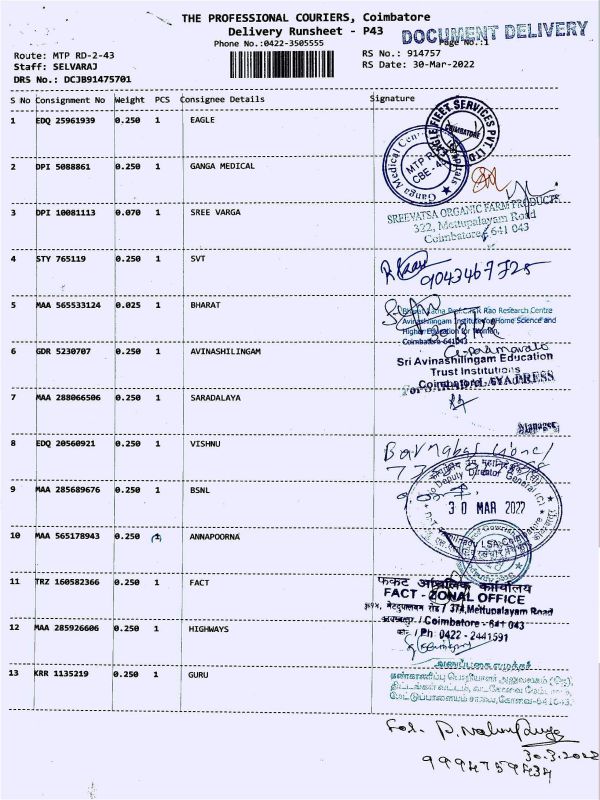 THE PROFESSIONAL COURIERS, Coimbatore
Delivery Runsheet - P43
DOCUMENT DELIVERY
Phone No.:0422-3505555
Page No.:1
Route: MTP RD-2-43
RS No.: 914757
Staff: SELVARAJ
RS Date: 30-Mar-2022
DRS No.: DCJB91475701
S No Consignment No Weight PCS Consignee Details Signature
1 EDQ 25961939 0.250 1 EAGLE
EAGLE FLEET SERVICES PVT. LTD
COIMBATORE
2 DPI 5088861 0.250 1 GANGA MEDICAL
Ganga Medical Centre Hospitals
MTP R
CBE - 43
3 DPI 10081113 0.070 1 SREE VARGA
SREEVATSA ORGANIC FARM PRODUCTS
322, Mettupalayam Road
Coimbatore - 641 043
4 STY 765119 0.250 1 SVT
9043467725
5 MAA 565533124 0.025 1 BHARAT
Bharat Ratna Prof C.N.R Rao Research Centre
Avinashilingam Institute for Home Science and
Higher Education for Women,
Coimbatore 641043
6 GDR 5230707 0.250 1 AVINASHILINGAM
Sri Avinashilingam Education
Trust Institutions
Coimbatore
7 MAA 288066506 0.250 1 SARADALAYA
For SARADALAYA PRESS
Manager
8 EDQ 20560921 0.250 1 VISHNU
9 MAA 285689676 0.250 1 BSNL
Deputy Director General (C)
30 MAR 2022
LSA Coimbatore
10 MAA 565178943 0.250 ANNAPOORNA
11 TRZ 160582366 0.250 1 FACT
फकट आंचलिक कार्यालय
FACT - ZONAL OFFICE
मेट्टुपालयम रोड / 374, Mettupalayam Road
/ Coimbatore - 641 043
/ Ph: 0422 - 2441591
12 MAA 285926606 0.250 1 HIGHWAYS
13 KRR 1135219 0.250 1 GURU
For.
30.3.2022
9994759434